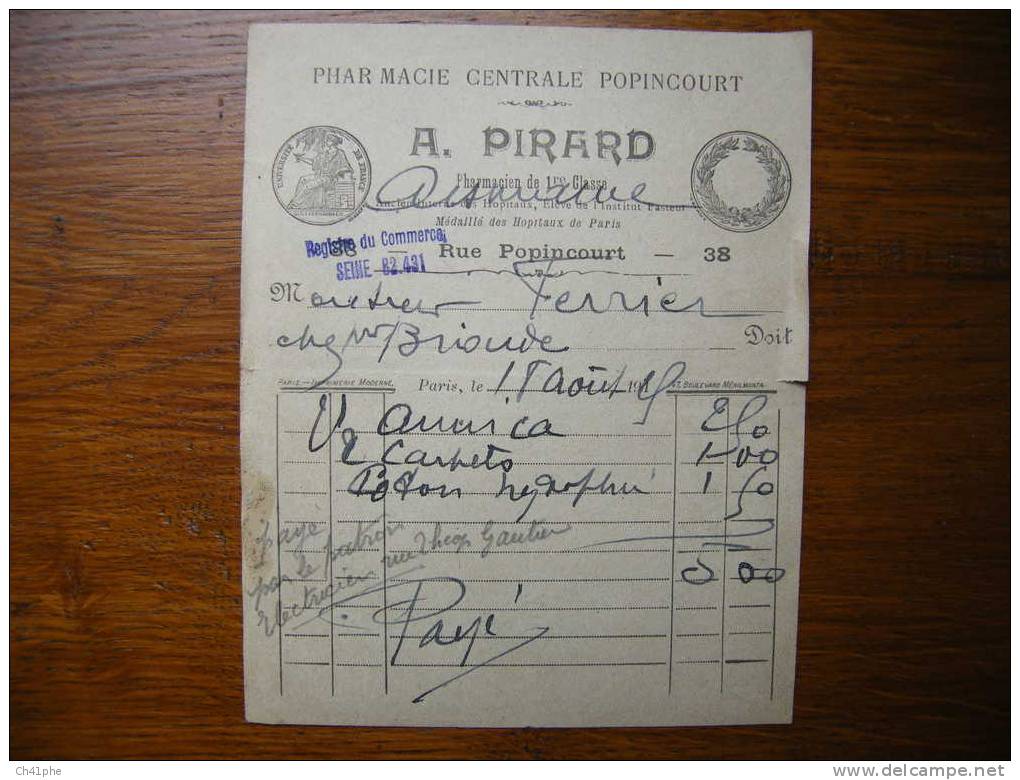 PHARMACIE CENTRALE POPINCOURT
A. PIRARD
UNIVERSITÉ DE FRANCE
Pharmacien de 1re Classe
Ancien Interne des Hopitaux, Élève de l'Institut Pasteur
Médaillé des Hopitaux de Paris
38 — Rue Popincourt — 38
Registre du Commerce
SEINE 82.431
Monsieur Ferrier
chez Mr Brioude Doit
PARIS — IMPRIMERIE MODERNE, Paris, le 18 Août 191 47, BOULEVARD MÉNILMONTA
Arnica 2 50
2 Carnets 1 00
1 50
5 00
payé
par le patron
Electricien rue Théop Gautier
Payé